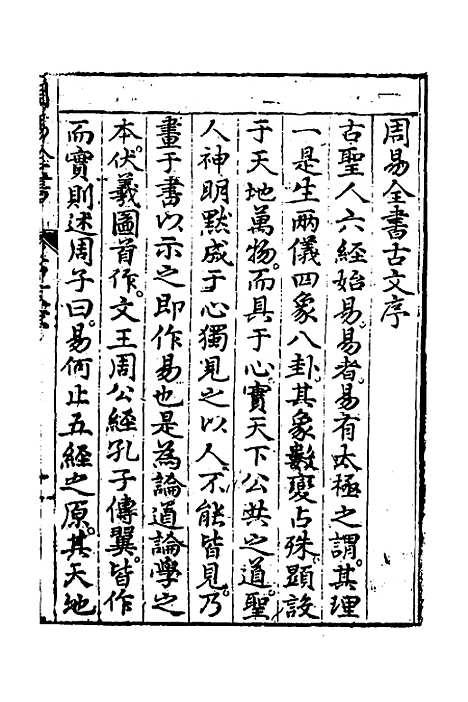 周易全書古文序
古聖人六經始易易者易有太極之謂其理
一是生兩儀四象八卦其象數變占殊顯設
于天地萬物而具于心實天下公共之道聖
人神明默成于心獨見之以人不能皆見乃
畫于書以示之即作易也是為論道論學之
本伏羲圖首作文王周公經孔子傳翼皆作
而實則述周子曰易何止五經之原其天地